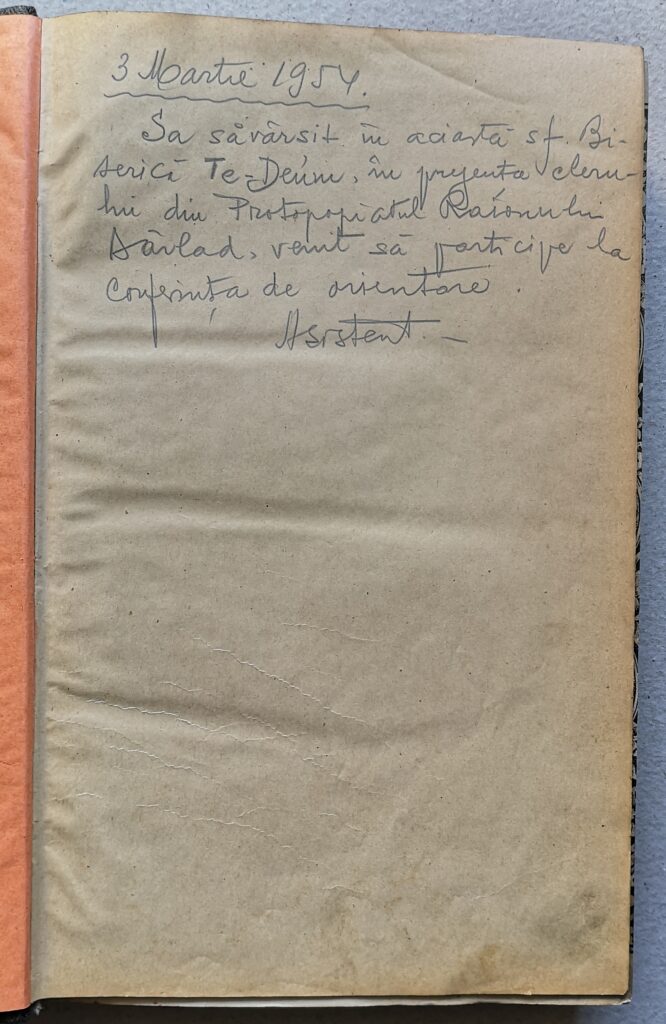 3 Martie 1954.
Sa săvârsit în aciastă sf. Bi-
serică Te-Deum, în prezenta cleru-
lui din Protopopiatul Raionului
Bârlad, venit să participe la
Conferința de orientare.
Asistent. –